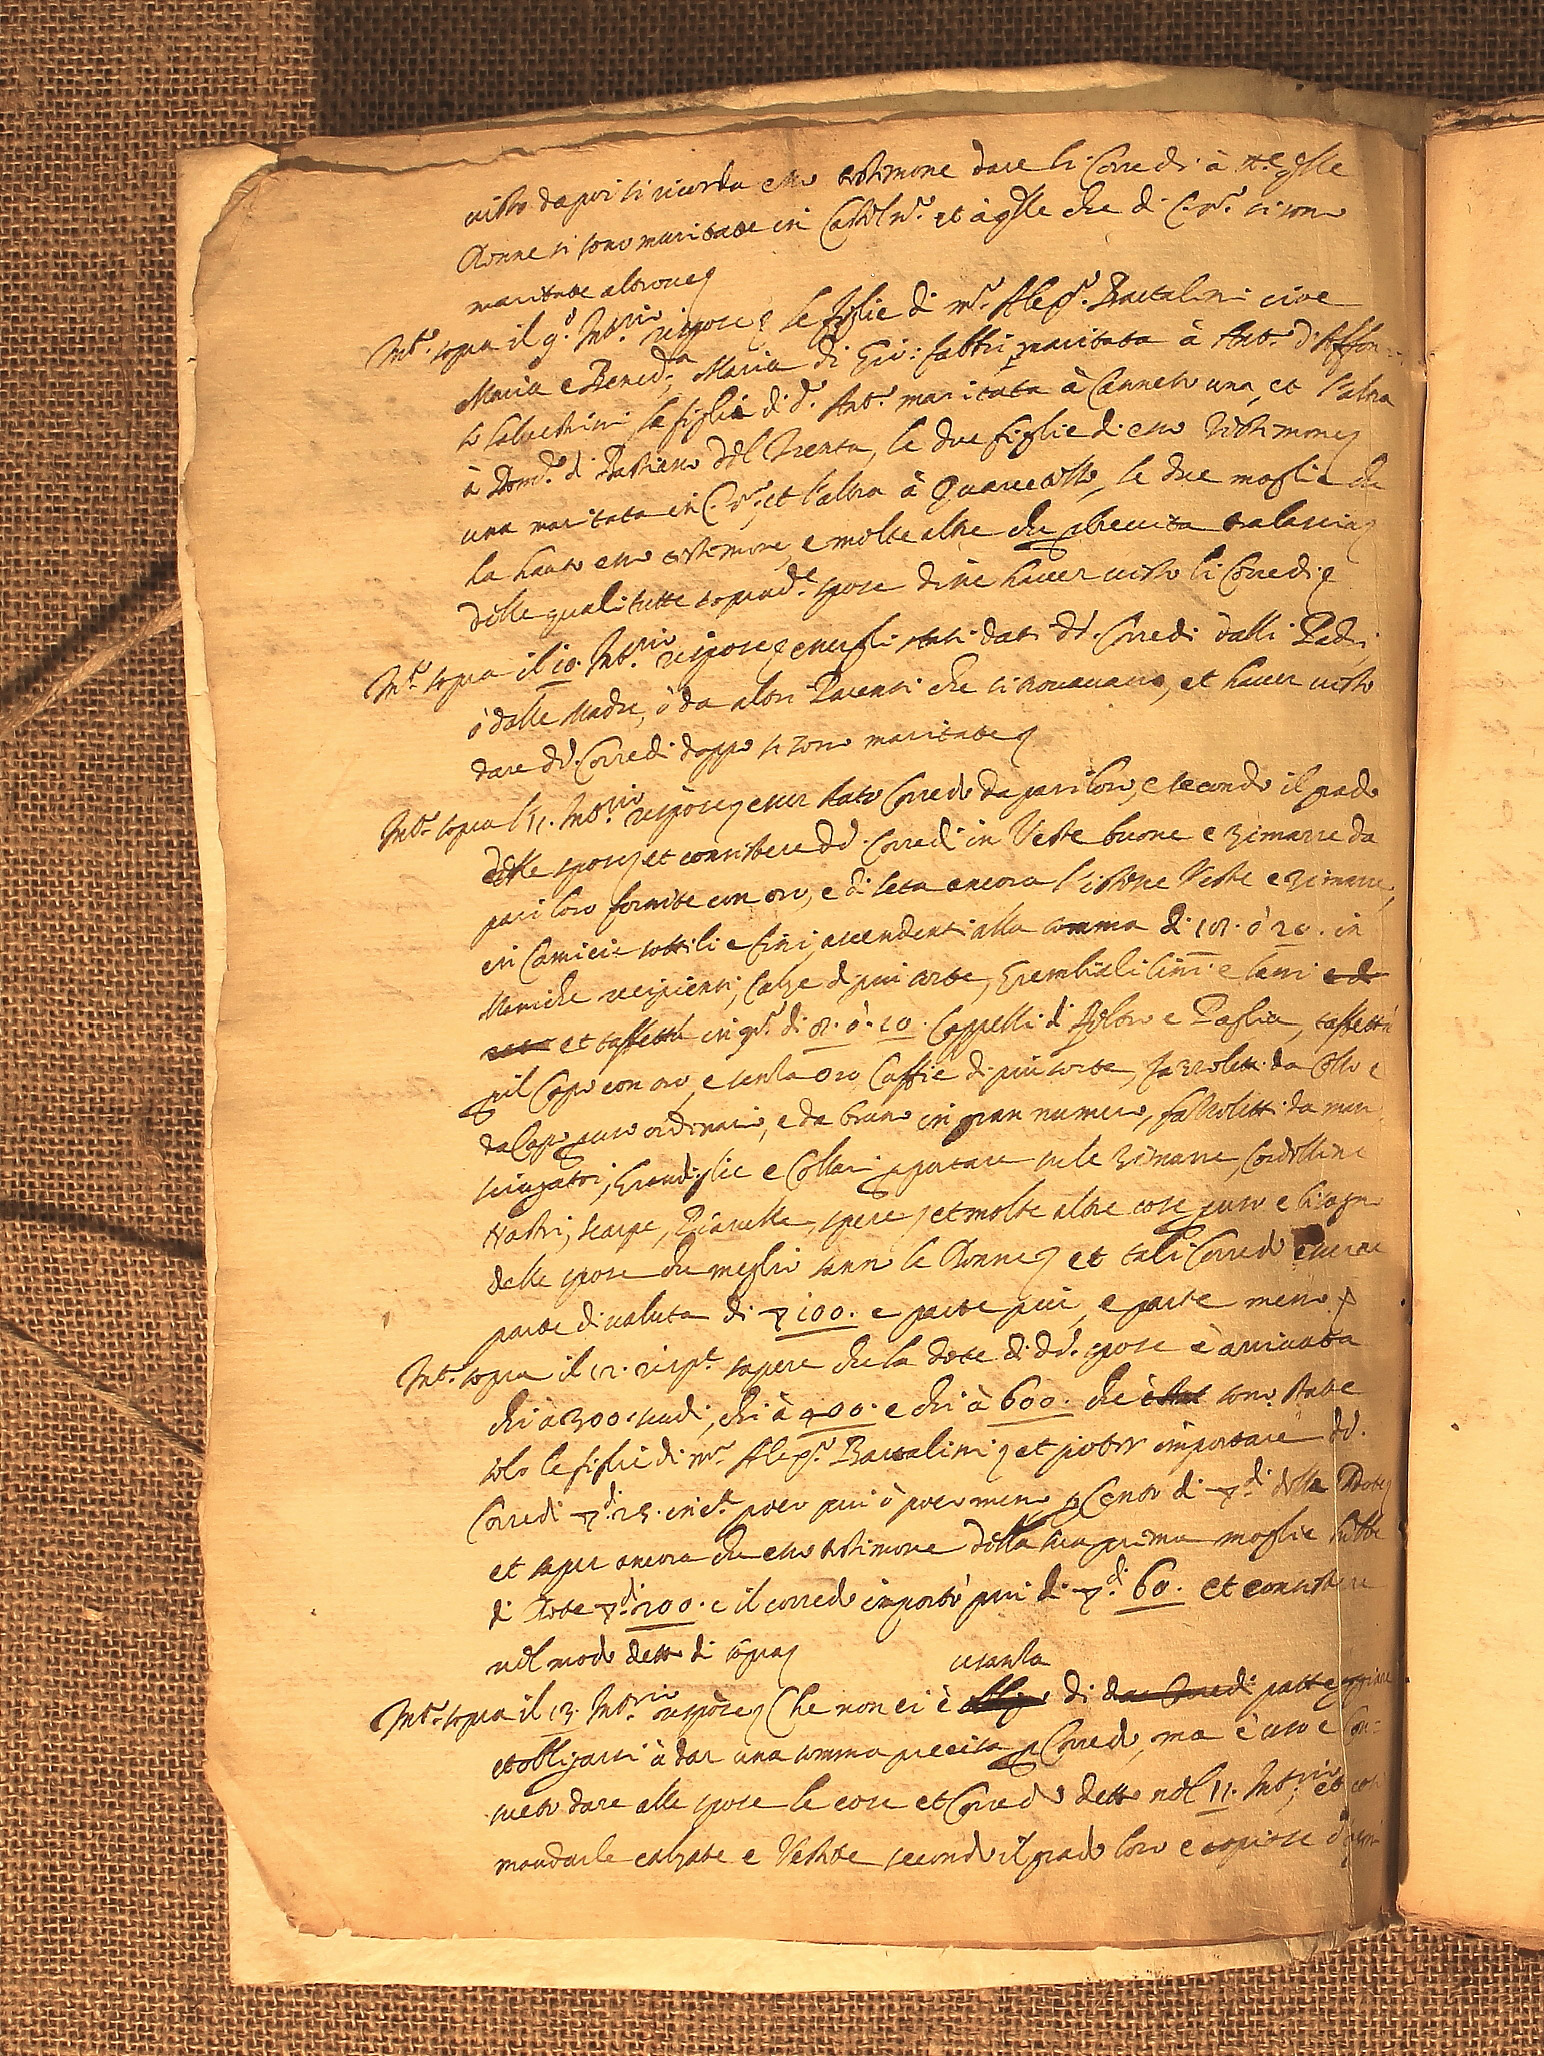 visto da poi si ricorda esso testimone dare li Corredi à tt.e q.lle
Donne si sono maritate in Castel n.o et à q.lle che di C. n.o si sono
maritate altrove
Int.o sopra il 9.o Int.rio rispose le figlie di m.r Aless.o Bartalini cioe
Maria e Bened.a, Maria di Gio: fabbri maritata à Ant.o d'Affon-
so Salvestrini, la figlia di d.o Ant.o maritata à Canneto una, et l'altra
à Dom.co di Bastiano del Trenta, le due figlie di esso testimone
una maritata in C. n.o, et l'altra à Querceto, le due moglie che
ha hauto esso testimone, e molte altre che p brevità tralascia
delle quali tutte soprad.e spose disse haver visto li Corredi
Int.o sopra il 10. Int.rio rispose essergli stati dati dd. Corredi dalli Padri
ò dalle Madre, ò da altri Parenti che si trovavano, et haver visto
dare dd. Corredi doppo si sono maritate
Int.o sopra l'11. Int.rio rispose esser stato Corredo da pari loro, e secondo il grado
delle spose, et consistere dd. Corredi in Veste buone e zimarre da
pari loro fornite con oro, e di seta ancora l'istesse Veste e zimarre,
in Camicie sottili e fini ascendenti alla somma di 18. ò 20. in
Maniche recipienti, Calze di più sorte, Grembiali lini e lani e di
et taffettà in q.tà di 8. ò 10. Cappelli di Feltro e Paglia, taffettà
p il Capo con oro, e senza oro Cuffie di più sorte, fazzoletti da Collo e
da Capo p uso ordinario, e da bruno in gran numero, fazzoletti da mano
sciugatoi, Grandiglie e Collari p portare su le zimarre, Cordelline
Nastri, scarpe, Pianelle, spere, et molte altre cose p uso e bisogno
delle spose che meglio sanno le Donne, et tali Corredi esserne
parte di valuta di ▽ 100. e parte più, e parte meno
Int.o sopra il 12. risp.e sapere che la dote di dd. spose è arrivata
chi à 300. scudi, chi à 400. e chi à 600. che sono state
solo le figlie di m.r Aless.o Bartalini, et poter importare dd.
Corredi ▽.di 25. in c.a poco più ò poco meno p Cento di ▽.di della Dote
et saper ancora che esso testimone della sua prima moglie hebbe
di Dote ▽.di 200. e il corredo importò più di ▽.di 60. et consistere
nel modo detto di sopra
usanza
Int.o sopra il 13. Int.rio rispose Che non ci è obligo di dar Corredi patteggiare
et obligarsi à dar una somma precisa p Corredo, ma è uso e Con-
sueto dare alle spose le cose et Corredo dette nel 11. Int.rio, et
mandarle calzate e Vestite secondo il grado loro e